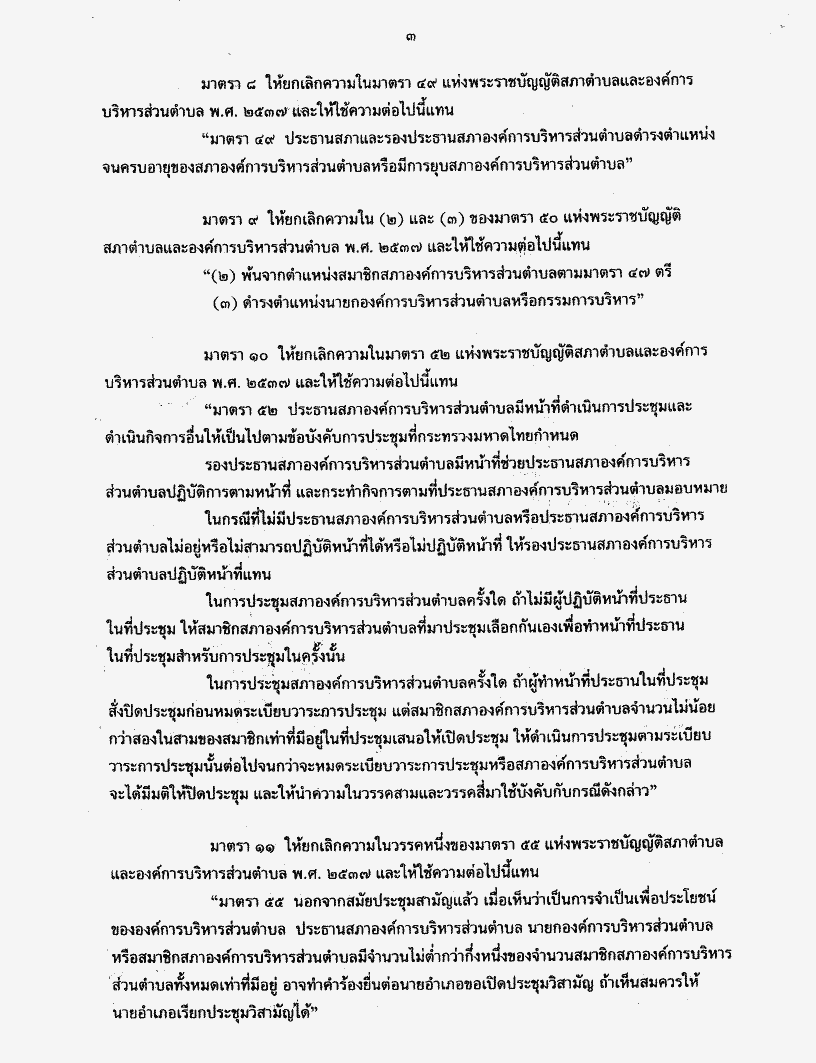 ๓
มาตรา ๘ ให้ยกเลิกความในมาตรา ๔๙ แห่งพระราชบัญญัติสภาตำบลและองค์การ
บริหารส่วนตำบล พ.ศ. ๒๕๓๗ และให้ใช้ความต่อไปนี้แทน
“มาตรา ๔๙ ประธานสภาและรองประธานสภาองค์การบริหารส่วนตำบลดำรงตำแหน่ง
จนครบอายุของสภาองค์การบริหารส่วนตำบลหรือมีการยุบสภาองค์การบริหารส่วนตำบล”
มาตรา ๙ ให้ยกเลิกความใน (๒) และ (๓) ของมาตรา ๕๐ แห่งพระราชบัญญัติ
สภาตำบลและองค์การบริหารส่วนตำบล พ.ศ. ๒๕๓๗ และให้ใช้ความต่อไปนี้แทน
“(๒) พ้นจากตำแหน่งสมาชิกสภาองค์การบริหารส่วนตำบลตามมาตรา ๔๗ ตรี
(๓) ดำรงตำแหน่งนายกองค์การบริหารส่วนตำบลหรือกรรมการบริหาร”
มาตรา ๑๐ ให้ยกเลิกความในมาตรา ๕๒ แห่งพระราชบัญญัติสภาตำบลและองค์การ
บริหารส่วนตำบล พ.ศ. ๒๕๓๗ และให้ใช้ความต่อไปนี้แทน
“มาตรา ๕๒ ประธานสภาองค์การบริหารส่วนตำบลมีหน้าที่ดำเนินการประชุมและ
ดำเนินกิจการอื่นให้เป็นไปตามข้อบังคับการประชุมที่กระทรวงมหาดไทยกำหนด
รองประธานสภาองค์การบริหารส่วนตำบลมีหน้าที่ช่วยประธานสภาองค์การบริหาร
ส่วนตำบลปฏิบัติการตามหน้าที่ และกระทำกิจการตามที่ประธานสภาองค์การบริหารส่วนตำบลมอบหมาย
ในกรณีที่ไม่มีประธานสภาองค์การบริหารส่วนตำบลหรือประธานสภาองค์การบริหาร
ส่วนตำบลไม่อยู่หรือไม่สามารถปฏิบัติหน้าที่ได้หรือไม่ปฏิบัติหน้าที่ ให้รองประธานสภาองค์การบริหาร
ส่วนตำบลปฏิบัติหน้าที่แทน
ในการประชุมสภาองค์การบริหารส่วนตำบลครั้งใด ถ้าไม่มีผู้ปฏิบัติหน้าที่ประธาน
ในที่ประชุม ให้สมาชิกสภาองค์การบริหารส่วนตำบลที่มาประชุมเลือกกันเองเพื่อทำหน้าที่ประธาน
ในที่ประชุมสำหรับการประชุมในครั้งนั้น
ในการประชุมสภาองค์การบริหารส่วนตำบลครั้งใด ถ้าผู้ทำหน้าที่ประธานในที่ประชุม
สั่งปิดประชุมก่อนหมดระเบียบวาระการประชุม แต่สมาชิกสภาองค์การบริหารส่วนตำบลจำนวนไม่น้อย
กว่าสองในสามของสมาชิกเท่าที่มีอยู่ในที่ประชุมเสนอให้เปิดประชุม ให้ดำเนินการประชุมตามระเบียบ
วาระการประชุมนั้นต่อไปจนกว่าจะหมดระเบียบวาระการประชุมหรือสภาองค์การบริหารส่วนตำบล
จะได้มีมติให้ปิดประชุม และให้นำความในวรรคสามและวรรคสี่มาใช้บังคับกับกรณีดังกล่าว”
มาตรา ๑๑ ให้ยกเลิกความในวรรคหนึ่งของมาตรา ๕๕ แห่งพระราชบัญญัติสภาตำบล
และองค์การบริหารส่วนตำบล พ.ศ. ๒๕๓๗ และให้ใช้ความต่อไปนี้แทน
“มาตรา ๕๕ นอกจากสมัยประชุมสามัญแล้ว เมื่อเห็นว่าเป็นการจำเป็นเพื่อประโยชน์
ขององค์การบริหารส่วนตำบล ประธานสภาองค์การบริหารส่วนตำบล นายกองค์การบริหารส่วนตำบล
หรือสมาชิกสภาองค์การบริหารส่วนตำบลมีจำนวนไม่ต่ำกว่ากึ่งหนึ่งของจำนวนสมาชิกสภาองค์การบริหาร
ส่วนตำบลทั้งหมดเท่าที่มีอยู่ อาจทำคำร้องยื่นต่อนายอำเภอขอเปิดประชุมวิสามัญ ถ้าเห็นสมควรให้
นายอำเภอเรียกประชุมวิสามัญได้”